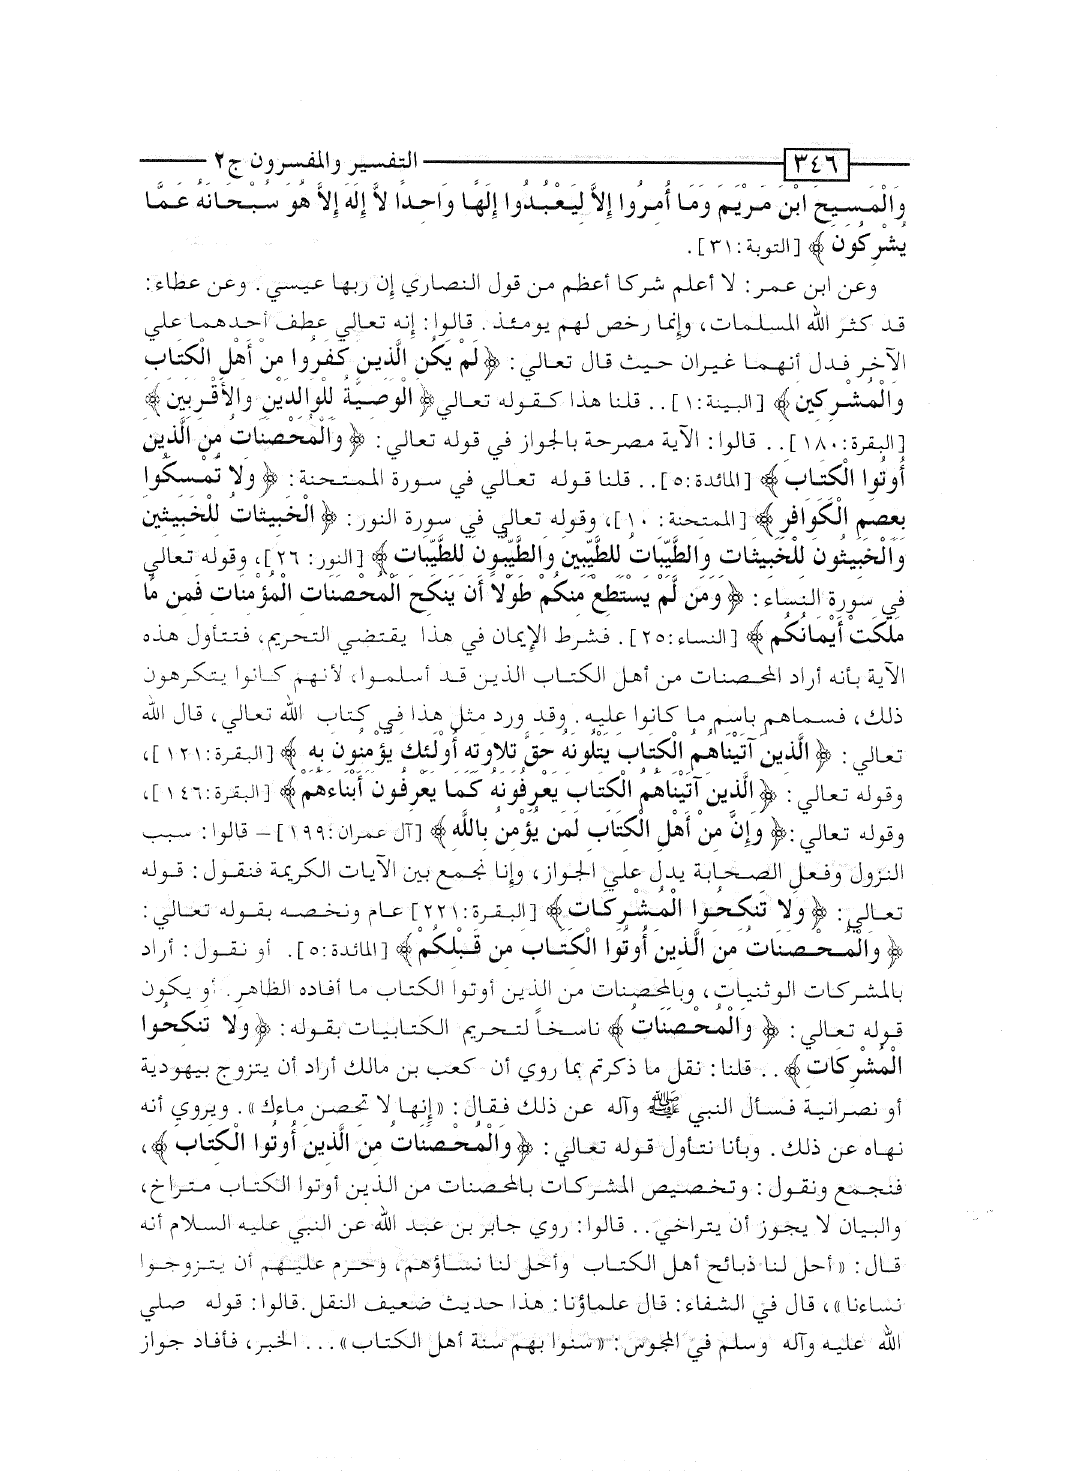 ٣٤٦ التفسير والمفسرون ج٢
وَالْمَسِيحَ ابْنَ مَرْيَمَ وَمَا أُمِرُوا إِلاَّ لِيَعْبُدُوا إِلَهًا وَاحِدًا لاَّ إِلَهَ إِلاَّ هُوَ سُبْحَانَهُ عَمَّا
يُشْرِكُونَ ﴾ [التوبة:٣١].
وعن ابن عمر: لا أعلم شركا أعظم من قول النصاري إن ربها عيسي. وعن عطاء:
قد كثر الله المسلمات، وإنما رخص لهم يومئذ. قالوا: إنه تعالي عطف أحدهما علي
الآخر فدل أنهما غيران حيث قال تعالي: ﴿ لَمْ يَكُنِ الَّذِينَ كَفَرُوا مِنْ أَهْلِ الْكِتَابِ
وَالْمُشْرِكِينَ ﴾ [البينة:١].. قلنا هذا كقوله تعالي ﴿ الْوَصِيَّةُ لِلْوَالِدَيْنِ وَالأَقْرَبِينَ ﴾
[البقرة:١٨٠].. قالوا: الآية مصرحة بالجواز في قوله تعالي: ﴿ وَالْمُحْصَنَاتُ مِنَ الَّذِينَ
أُوتُوا الْكِتَابَ ﴾ [المائدة:٥].. قلنا قوله تعالي في سورة الممتحنة: ﴿ وَلا تُمْسِكُوا
بِعِصَمِ الْكَوَافِرِ ﴾ [الممتحنة: ١٠]، وقوله تعالي في سورة النور: ﴿ الْخَبِيثَاتُ لِلْخَبِيثِينَ
وَالْخَبِيثُونَ لِلْخَبِيثَاتِ وَالطَّيِّبَاتُ لِلطَّيِّبِينَ وَالطَّيِّبُونَ لِلطَّيِّبَاتِ ﴾ [النور: ٢٦]، وقوله تعالي
في سورة النساء: ﴿ وَمَن لَّمْ يَسْتَطِعْ مِنكُمْ طَوْلاً أَن يَنكِحَ الْمُحْصَنَاتِ الْمُؤْمِنَاتِ فَمِن مَّا
مَلَكَتْ أَيْمَانُكُم ﴾ [النساء:٢٥]. فشرط الإيمان في هذا يقتضي التحريم، فتتأول هذه
الآية بأنه أراد المحصنات من أهل الكتاب الذين قد أسلموا، لأنهم كانوا يتكرهون
ذلك، فسماهم باسم ما كانوا عليه. وقد ورد مثل هذا في كتاب الله تعالي، قال الله
تعالي: ﴿ الَّذِينَ آتَيْنَاهُمُ الْكِتَابَ يَتْلُونَهُ حَقَّ تِلاوَتِهِ أُوْلَئِكَ يُؤْمِنُونَ بِهِ ﴾ [البقرة:١٢١]،
وقوله تعالي: ﴿ الَّذِينَ آتَيْنَاهُمُ الْكِتَابَ يَعْرِفُونَهُ كَمَا يَعْرِفُونَ أَبْنَاءَهُمْ ﴾ [البقرة:١٤٦]،
وقوله تعالي: ﴿ وَإِنَّ مِنْ أَهْلِ الْكِتَابِ لَمَن يُؤْمِنُ بِاللَّهِ ﴾ [آل عمران:١٩٩] – قالوا: سبب
النزول وفعل الصحابة يدل علي الجواز، وإنا نجمع بين الآيات الكريمة فنقول: قوله
تعالي: ﴿ وَلا تَنكِحُوا الْمُشْرِكَاتِ ﴾ [البقرة:٢٢١] عام ونخصه بقوله تعالي:
﴿ وَالْمُحْصَنَاتُ مِنَ الَّذِينَ أُوتُوا الْكِتَابَ مِن قَبْلِكُمْ ﴾ [المائدة:٥]. أو نقول: أراد
بالمشركات الوثنيات، وبالمحصنات من الذين أوتوا الكتاب ما أفاده الظاهر. أو يكون
قوله تعالي: ﴿ وَالْمُحْصَنَاتُ ﴾ ناسخاً لتحريم الكتابيات بقوله: ﴿ وَلا تَنكِحُوا
الْمُشْرِكَاتِ ﴾.. قلنا: نقل ما ذكرتم بما روي أن كعب بن مالك أراد أن يتزوج بيهودية
أو نصرانية فسأل النبي ﷺ وآله عن ذلك فقال: «إنها لا تحصن ماءك». ويروي أنه
نهاه عن ذلك. وبأنا نتأول قوله تعالي: ﴿ وَالْمُحْصَنَاتُ مِنَ الَّذِينَ أُوتُوا الْكِتَابَ ﴾،
فنجمع ونقول: وتخصيص المشركات بالمحصنات من الذين أوتوا الكتاب متراخ،
والبيان لا يجوز أن يتراخي.. قالوا: روي جابر بن عبد الله عن النبي عليه السلام أنه
قال: «أحل لنا ذبائح أهل الكتاب وأحل لنا نساؤهم، وحرم عليهم أن يتزوجوا
نساءنا»، قال في الشفاء: قال علماؤنا: هذا حديث ضعيف النقل. قالوا: قوله صلي
الله عليه وآله وسلم في المجوس: «سنوا بهم سنة أهل الكتاب»... الخبر، فأفاد جواز